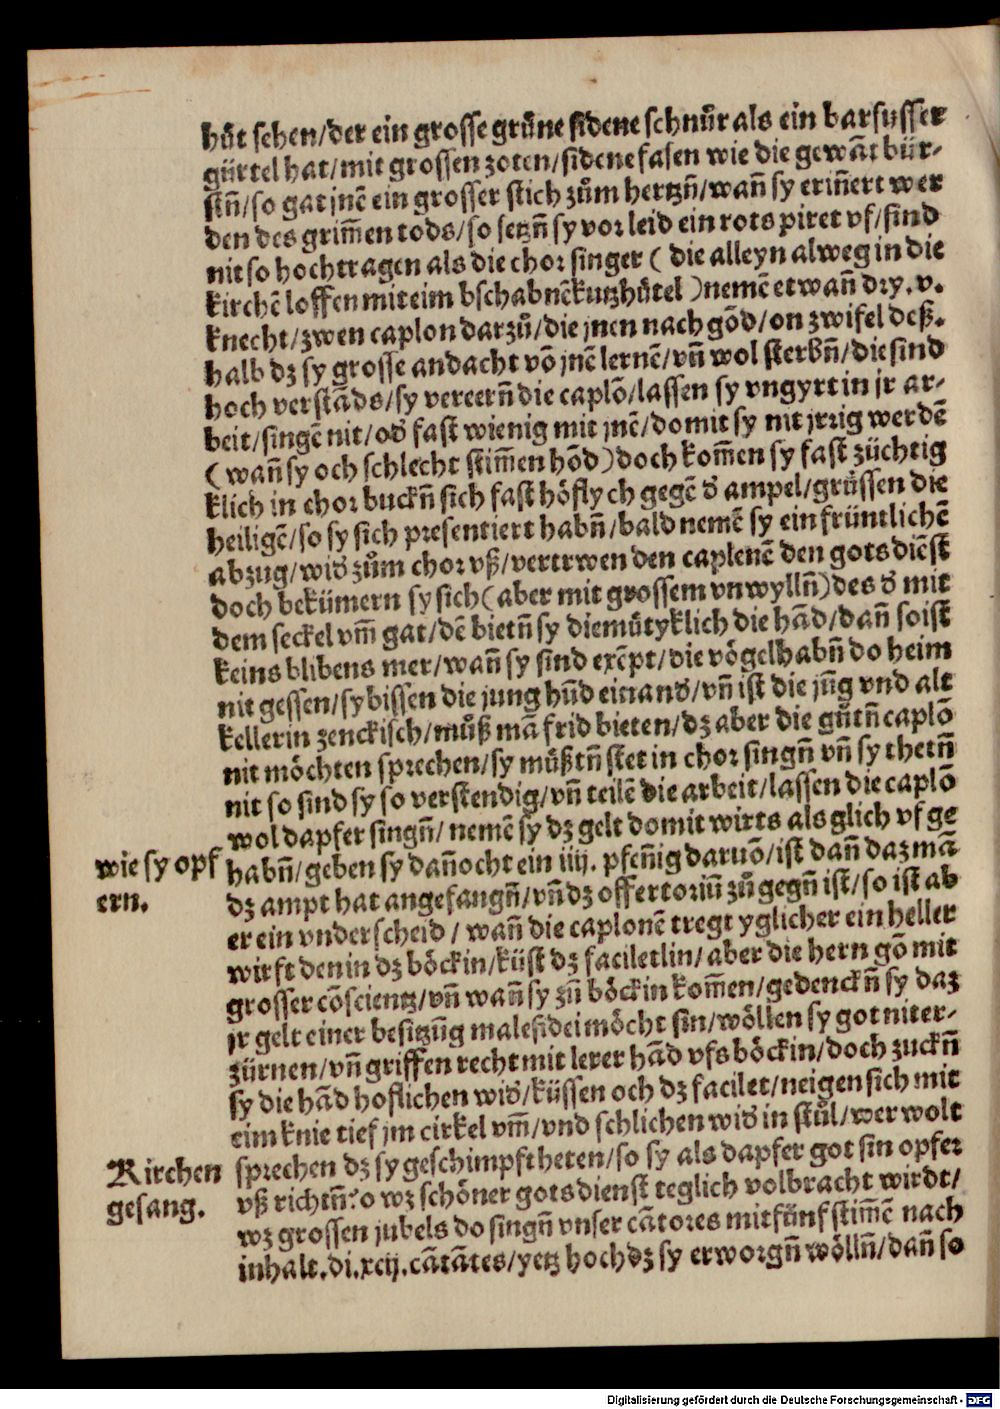 hůt sehen/der ein grosse grůne sidene schnůr als ein barfusser
gürtel hat/mit grossen zoten/sidene fasen wie die gewāt bür-
stn̄/so gat jnē ein grosser stich zům hertzn̄/wan̄ sy erin̄ert wer
den des grim̄en tods/so setzn̄ sy vor leid ein rots piret vf/sind
nit so hochtragen als die chor singer ( die alleyn alweg in die
kirchē loffen mit eim bschabnē kutzhůtel ) nemē etwan̄ dry. v.
knecht/zwen caplon darzů/die jnen nach gōd/on zwifel deß-
halb dz sy grosse andacht vō jnē lernē/vn̄ wol sterbn̄/die sind
hoch verstāds/sy vereern̄ die caplō/lassen sy vngyrt in jr ar-
beit/singē nit/od̄ fast wienig mit jnē/domit sy nit jrrig werdē
(wan̄ sy och schlecht stim̄en hōd) doch kom̄en sy fast züchtig
klich in chor buckn̄ sich fast höflych gegē d̄ ampel/grůssen die
heiligē/so sy sich presentiert habn̄/bald nemē sy ein früntlichē
abzug/wid̄ zům chor vß/vertrwen den caplenē den gots diēst
doch bekümern sy sich (aber mit grossem vnwylln̄) des d̄ mit
dem seckel vm̄ gat/dē bietn̄ sy diemůtyklich die hād/dan̄ so ist
keins blibens mer/wan̄ sy sind exēpt/die vögel habn̄ do heim
nit gessen/sy bissen die jung hūd einand̄/vn̄ ist die jūg vnd alt
kellerin zenckisch/můß mā frid bieten/dz aber die gůtn̄ caplō
nit möchten sprechen/sy můßtn̄ stet in chor singn̄ vn̄ sy thetn̄
nit so sind sy so verstendig/vn̄ teilē die arbeit/lassen die caplō
wol dapfer singn̄/ nemē sy dz gelt domit wirts als glich vf ge
wie sy opf
ern.
habn̄/geben sy dan̄ocht ein iiij. pfen̄ig daruō/ist dan̄ daz mā
dz ampt hat angefangn̄/vn̄ dz offertoriū zů gegn̄ ist/so ist ab
er ein vnderscheid / wan̄ die caplonē tregt yglicher ein heller
wirft den in dz böckin/küst dz faciletlin/ aber die hern gō mit
grosser cōscientz/vn̄ wan̄ sy zū böckin kom̄en/gedenckn̄ sy daz
jr gelt einer besitzūg malefidei möcht sin/wöllen sy got nit er-
zürnen/vn̄ griffen recht mit lerer hād vfs böckin/doch zuckn̄
sy die hād hoflichen wid̄/küssen och dz facilet/neigen sich mit
eim knie tief jm cirkel vm̄/vnd schlichen wid̄ in stůl/wer wolt
Kirchen
gesang.
sprechen dz sy geschimpft heten/so sy als dapfer got sin opfer
vß richtn̄? o wz schöner gots dienst teglich volbracht wirdt/
wz grossen jubels do singn̄ vnser cātores mit fünf stim̄ē nach
inhalt.di.xcij.cātātes/yetz hoch dz sy erworgn̄ wölln̄/dan̄ so
Digitalisierung gefördert durch die Deutsche Forschungsgemeinschaft - DFG